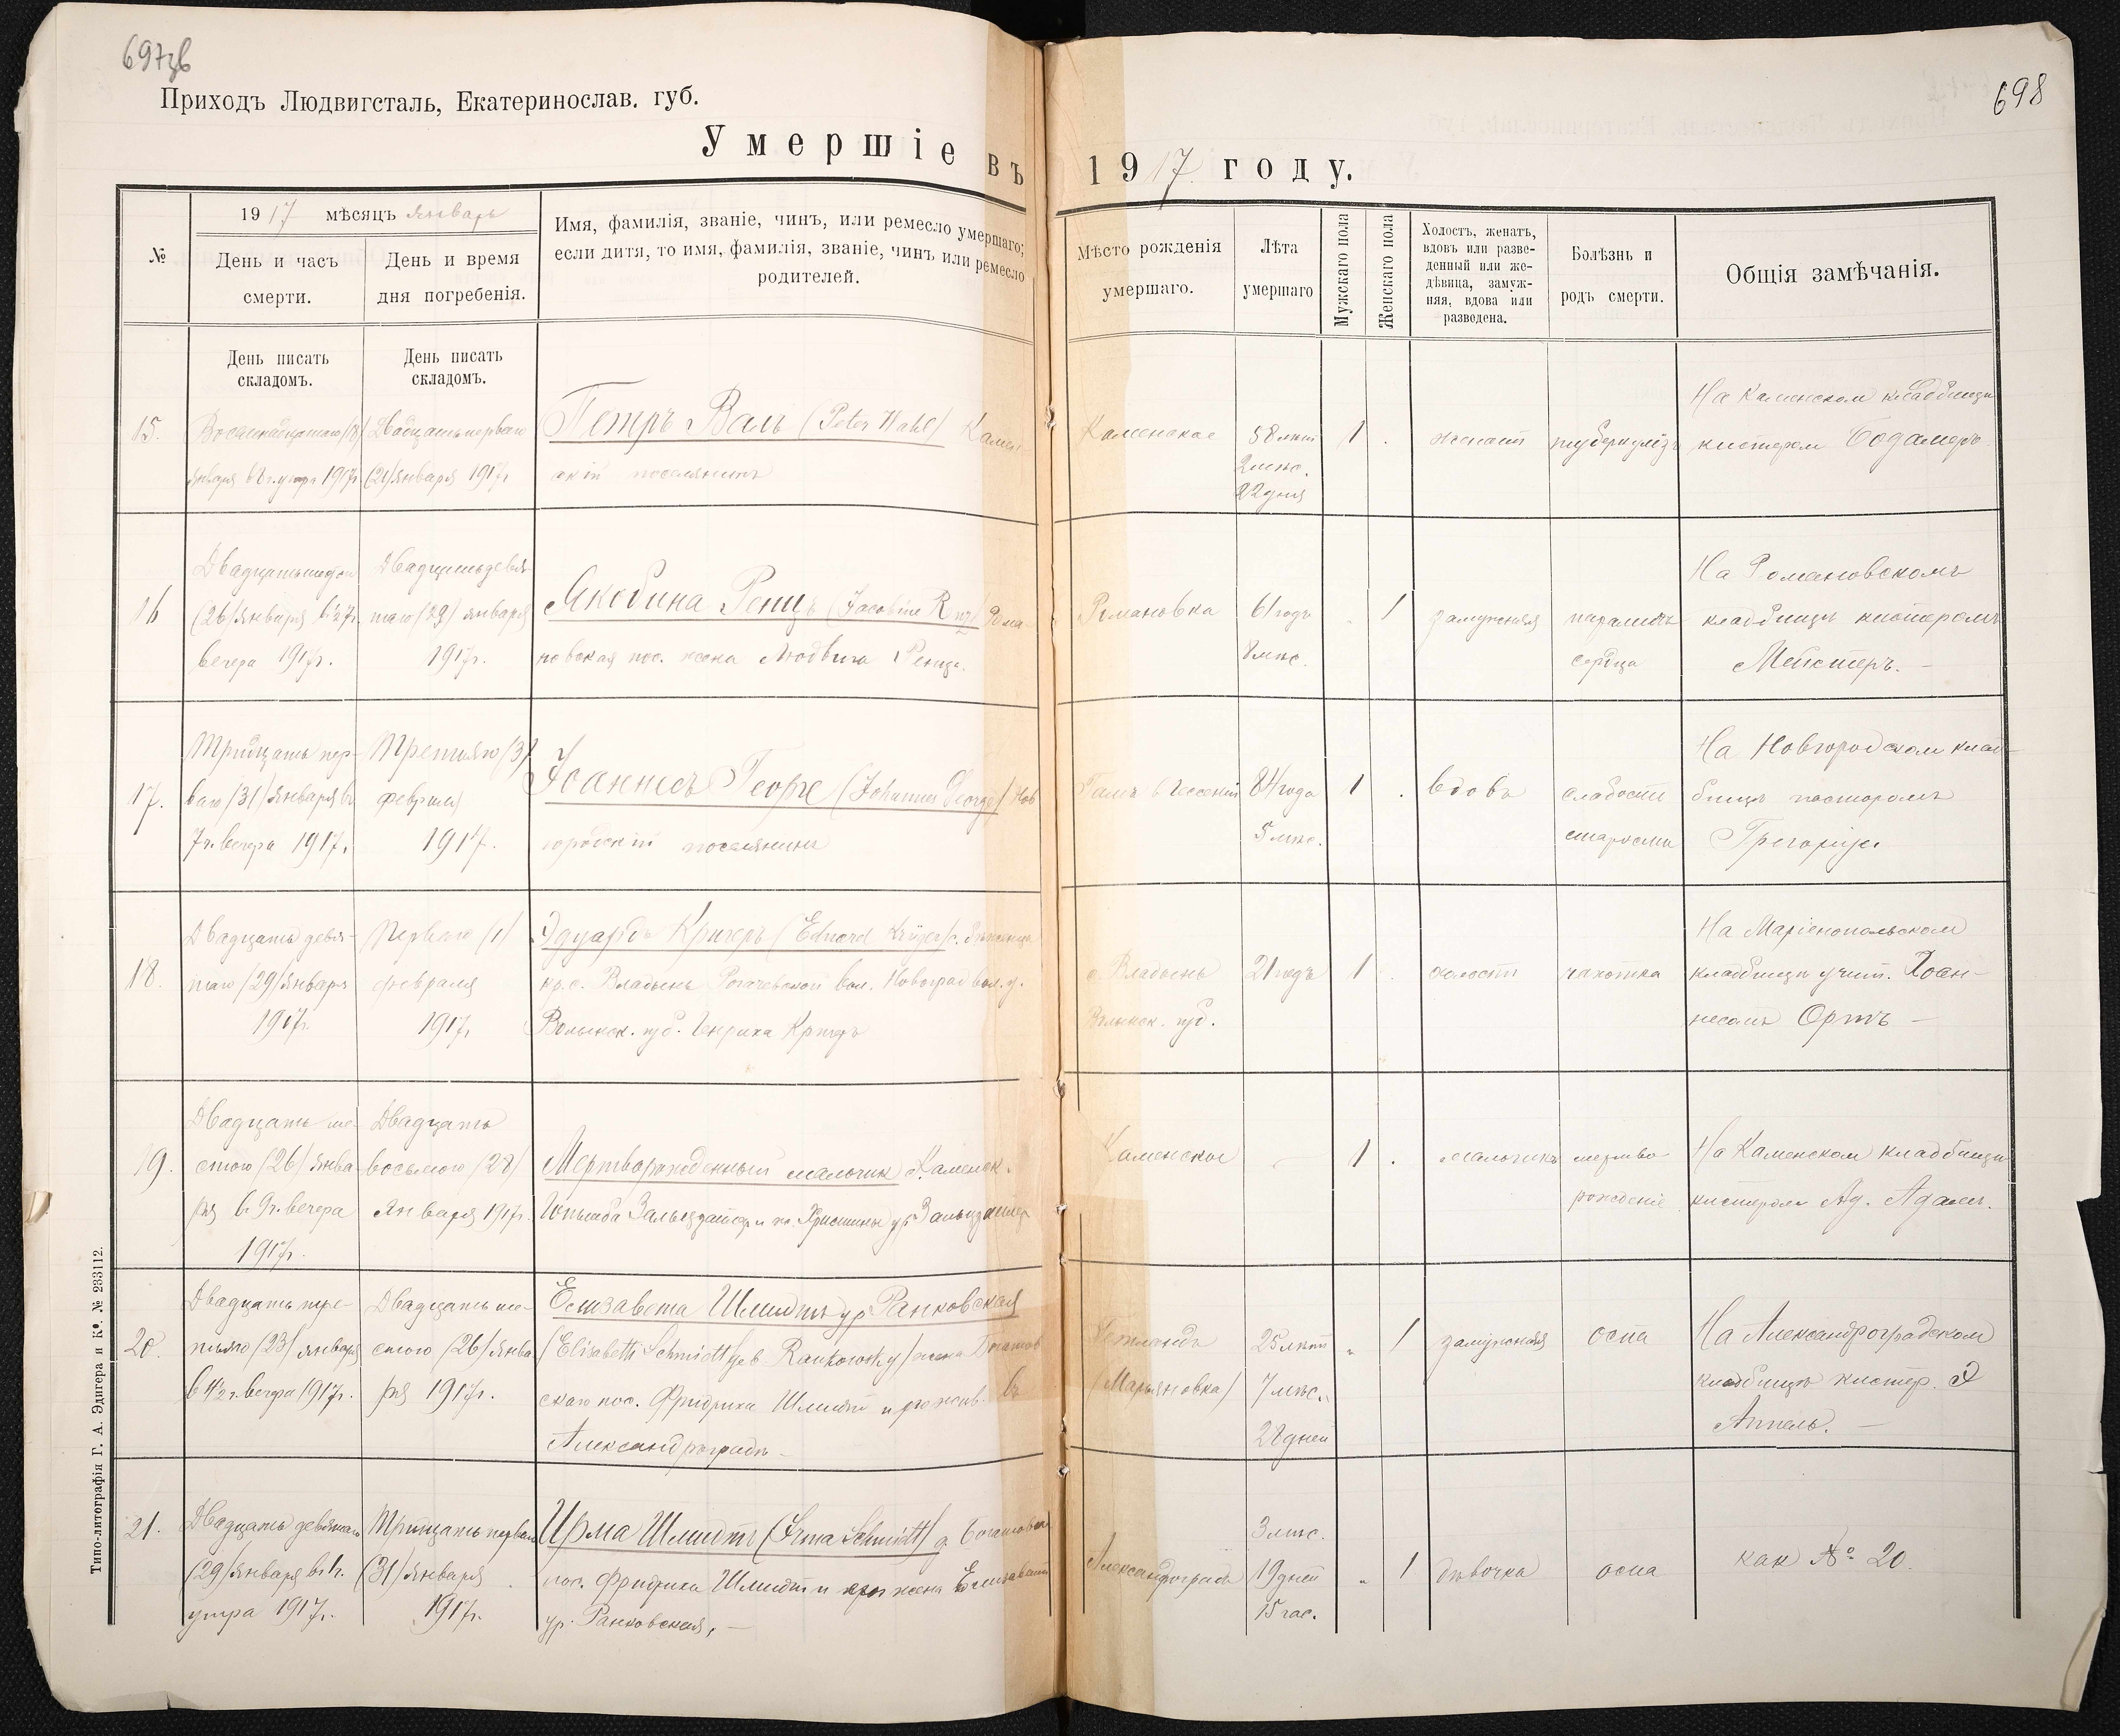 697об
698
Приходъ Людвигсталь, Екатеринослав. губ.
Умершіе въ 1917 году.
№
1917 мѣсяцъ январь
День и часъ
смерти.
День и время
дня погребенія.
Имя, фамилія, званіе, чинъ, или ремесло умершаго;
если дитя, то имя, фамилія, званіе, чинъ или ремесло
родителей.
Мѣсто рожденія
умершаго.
Лѣта
умершаго
Мужскаго пола
Женскаго пола
Холостъ, женатъ,
вдовъ или разве-
денный или же-
дѣвица, замуж-
няя, вдова или
разведена.
Болѣзнь и
родъ смерти.
Общія замѣчанія.
День писать
складомъ.
День писать
складомъ.
15.
Восемнадцатаго (18)
января 1917г.
Двадцать перваго
(21) января 1917г.
Петръ Валь (Peter Wahl) Камен-
скій поселянинъ
Каменское
58 лѣт
2 мѣс.
22 дня
1
женатъ
туберкулёзъ
На Каменском кладбищѣ
кистером Бодамеръ
16
Двадцать шестого
(26) января в 7 ч.
вечера 1917г.
Двадцать девя-
таго (29) января
1917г.
Якобина Ренцъ (Jacobine Renz) Рома-
новская пос. жена Людвига Ренцъ.
Романовка
61 годъ
8 мѣс.
1
замужняя
параличъ
сердца
На Романовскомъ
кладбищѣ кистеромъ
Мейстеръ.
17.
Тридцать пер-
ваго (31) января в
7 ч. вечера 1917г.
Третьяго (3)
февраля
1917.
Іоаннесъ Георге (Johannes George) Нов
городскій поселянинъ
84 года
5 мѣс.
1
вдовъ
слабость
старости
На Новгородском клад-
бищѣ пасторомъ
18.
Двадцать девя-
таго (29) января
1917г.
Перваго (1)
февраля
1917г.
Эдуардъ Кригеръ (Eduard Krüger)
кр. с. Владынь Рогачевской вол. Новоградвол. у.
Волынск. губ. Генриха Кригеръ
с. Владынь
Волынск. губ.
21 годъ
1
холостъ
чахотка
На Маріенопольском
кладбищѣ учит. Іоан-
несомъ Ортъ
19.
Двадцать ше-
стого (26) янва-
ря в 9 ч. вечера
1917г.
Двадцать
восьмого (28)
Января 1917г.
Мертворожденный мальчик Каменск.
Каменское
1
мальчикъ
мертво
рожденіе
На Каменском кладбищѣ
кистером Ад. Адамъ.
20.
Двадцать тре-
тьяго (23) января
в 4½ ч. вечера 1917г.
Двадцать ше-
стого (26) янва
ря 1917г.
Елизавета Шмидтъ ур. Ранковская
(Elisabeth Schmidt geb Rankowsky) жена Богатов
скаго пос. Фридриха Шмидт и прожив. в
Александроградѣ
(Марьяновка)
25 лѣтъ
7 мѣс.
28 дней
1
замужняя
оспа
На Александроградском
кладбищѣ кистер. Э
Аппель.
21.
Двадцать девятаго
(29) января в 1 ч.
утра 1917г.
Тридцать перваго
(31) января
1917г.
Ирма Шмидтъ (Irma Schmidt) д. Богатовск
пос. Фридриха Шмидт и жена Елизавета
ур. Ранковская,
Александроградъ
3 мѣс.
19 дней
15 час.
1
дѣвочка
оспа
как № 20.
Типо-литографія Г. А. Эдигера и Ко. № 233112.